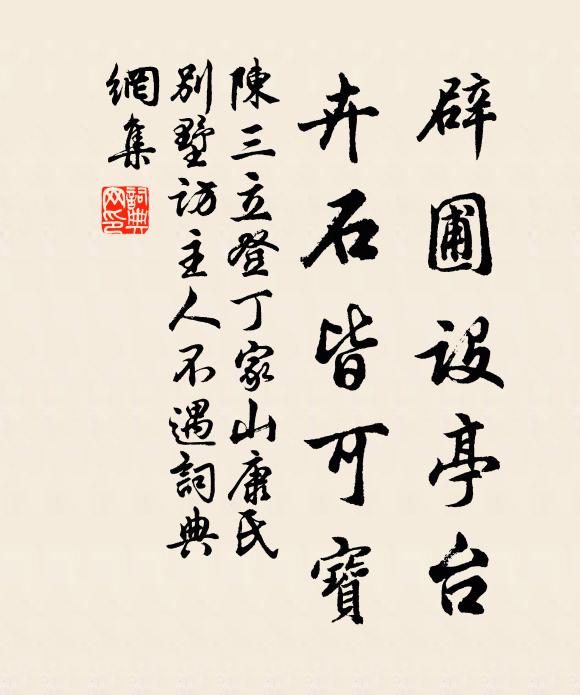 辟圃設亭台
卉石皆可寶
陳三立登丁家山康氏
別墅訪主人不遇詞典
網集
詞典網印